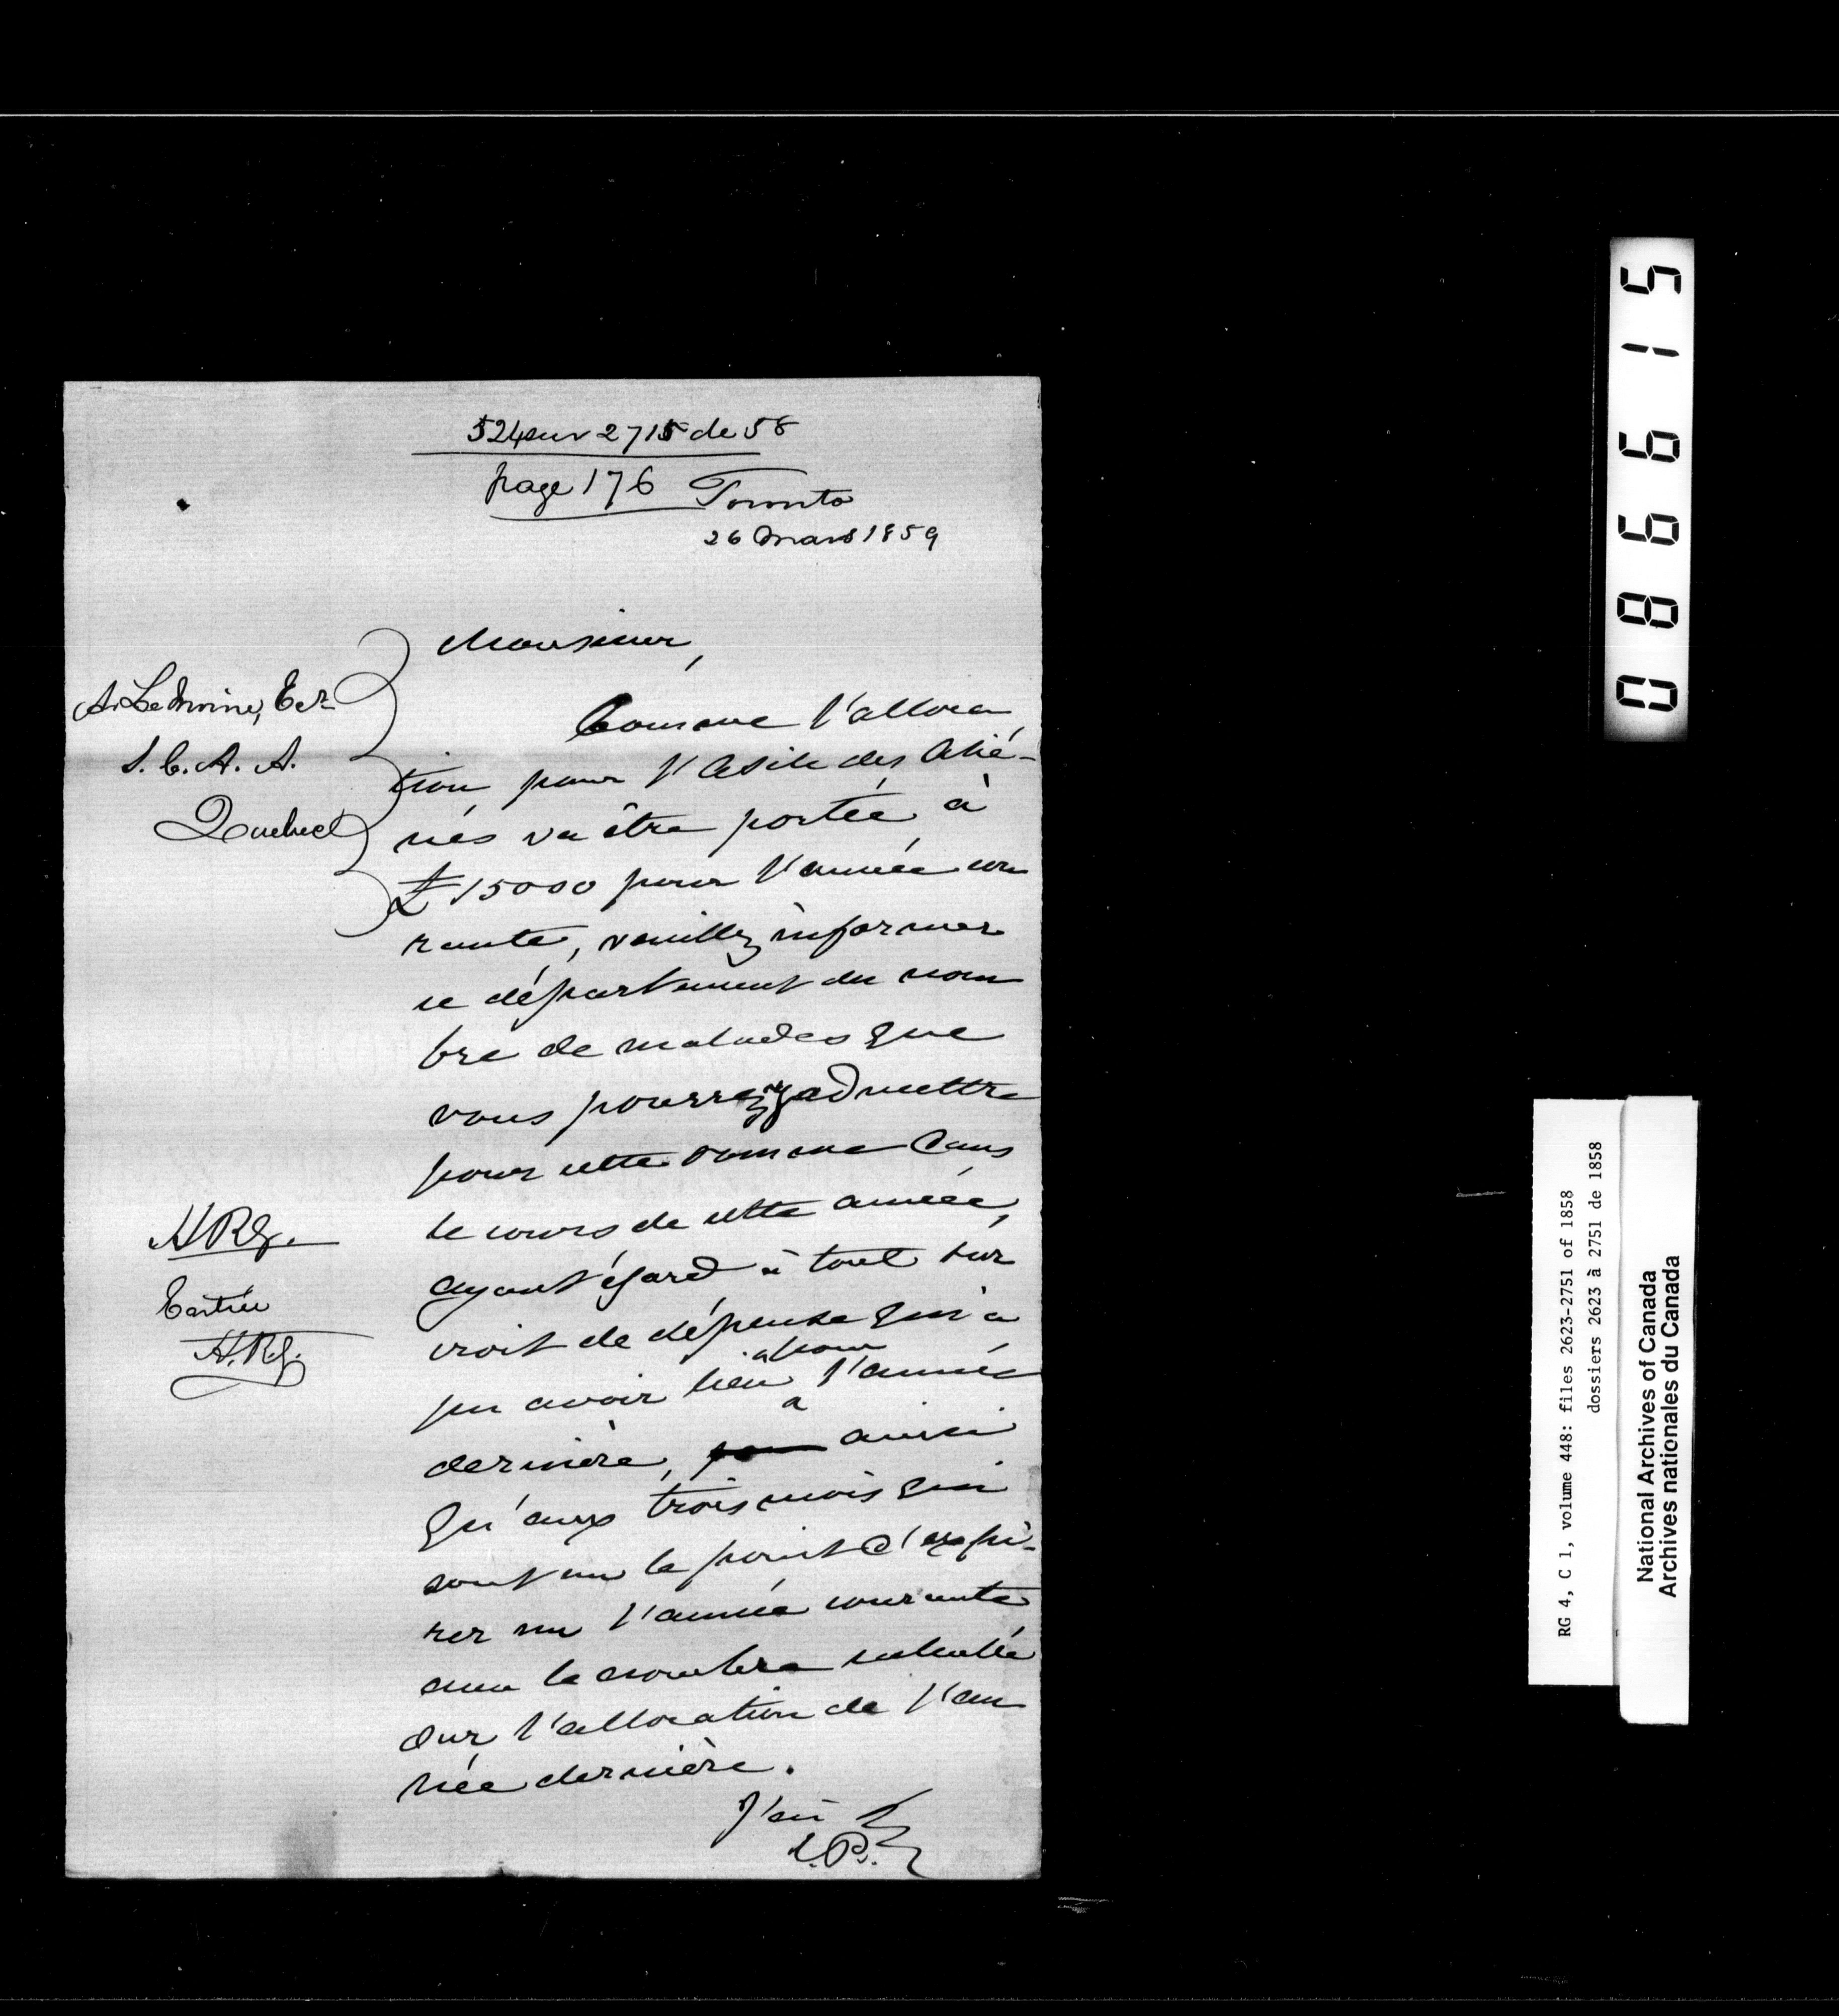 524 sur 2715 de 58
page 176 Toronto
26 Mars 1859
Monsieur,
A. LeMoine, Ecr
S. C. A. A.
Quebec
Comme l'alloca
tion pour l'Asile des Alié-
nés va être portée à
£15000 pour l'année cou
rante, veuillez informer
ce département du nom
bre de malades que
vous pourrez admettre
pour cette somme dans
le cours de cette année,
ayant égard à tout sur
croit de dépense qui a
pu avoir lieu pour l'année
dernière, ainsi
qu'aux trois mois qui
sont sur le point d'expi-
rer sur l'année courante
avec le nombre calculé
sur l'allocation de l'an
née dernière.
J'ai
E.P.
HRG.
Entrée
H.RG.
086615
RG 4, C 1, volume 448: files 2623-2751 of 1858
dossiers 2623 à 2751 de 1858
National Archives of Canada
Archives nationales du Canada